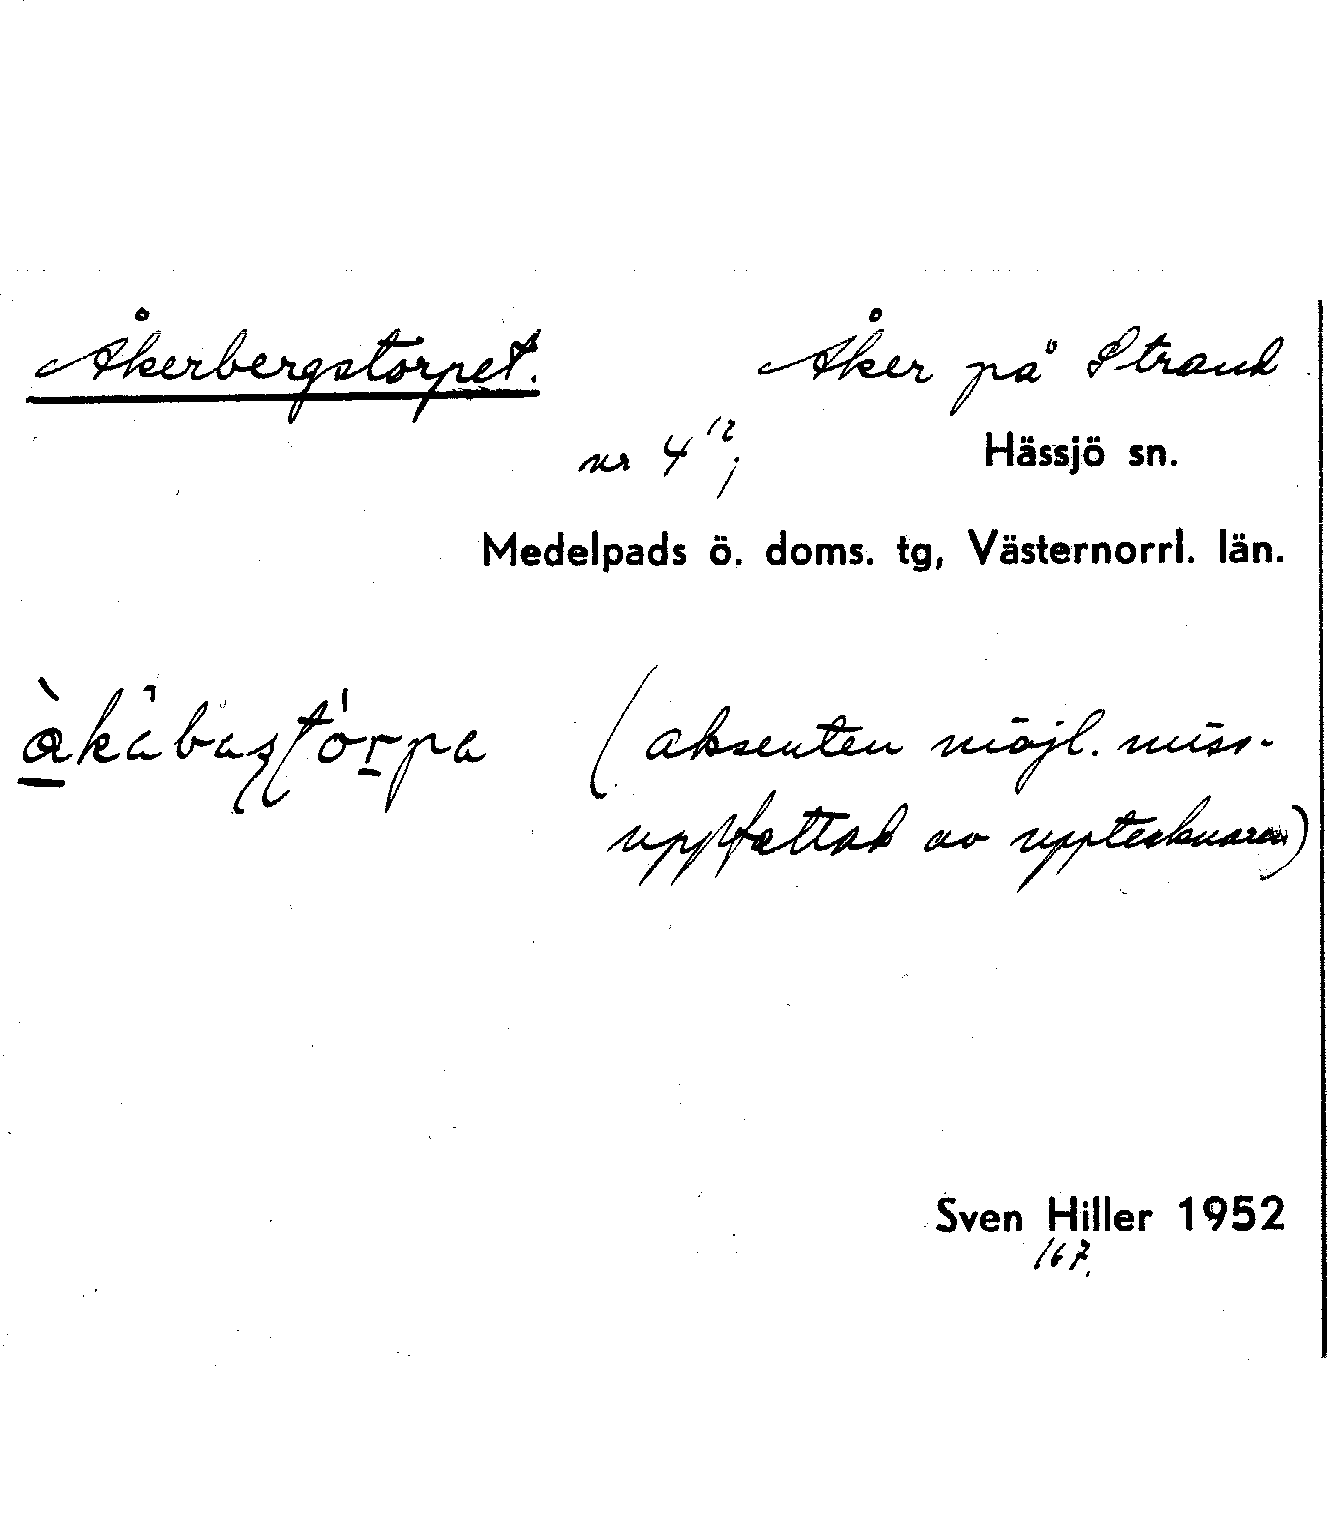 Åkerbergstorpet. Åker på Strand
nr 4¹²; Hässjö sn.
Medelpads ö. doms. tg, Västernorrl. län.
(aksenten möjl. miss-
uppfattad av upptecknaren)
Sven Hiller 1952
167.